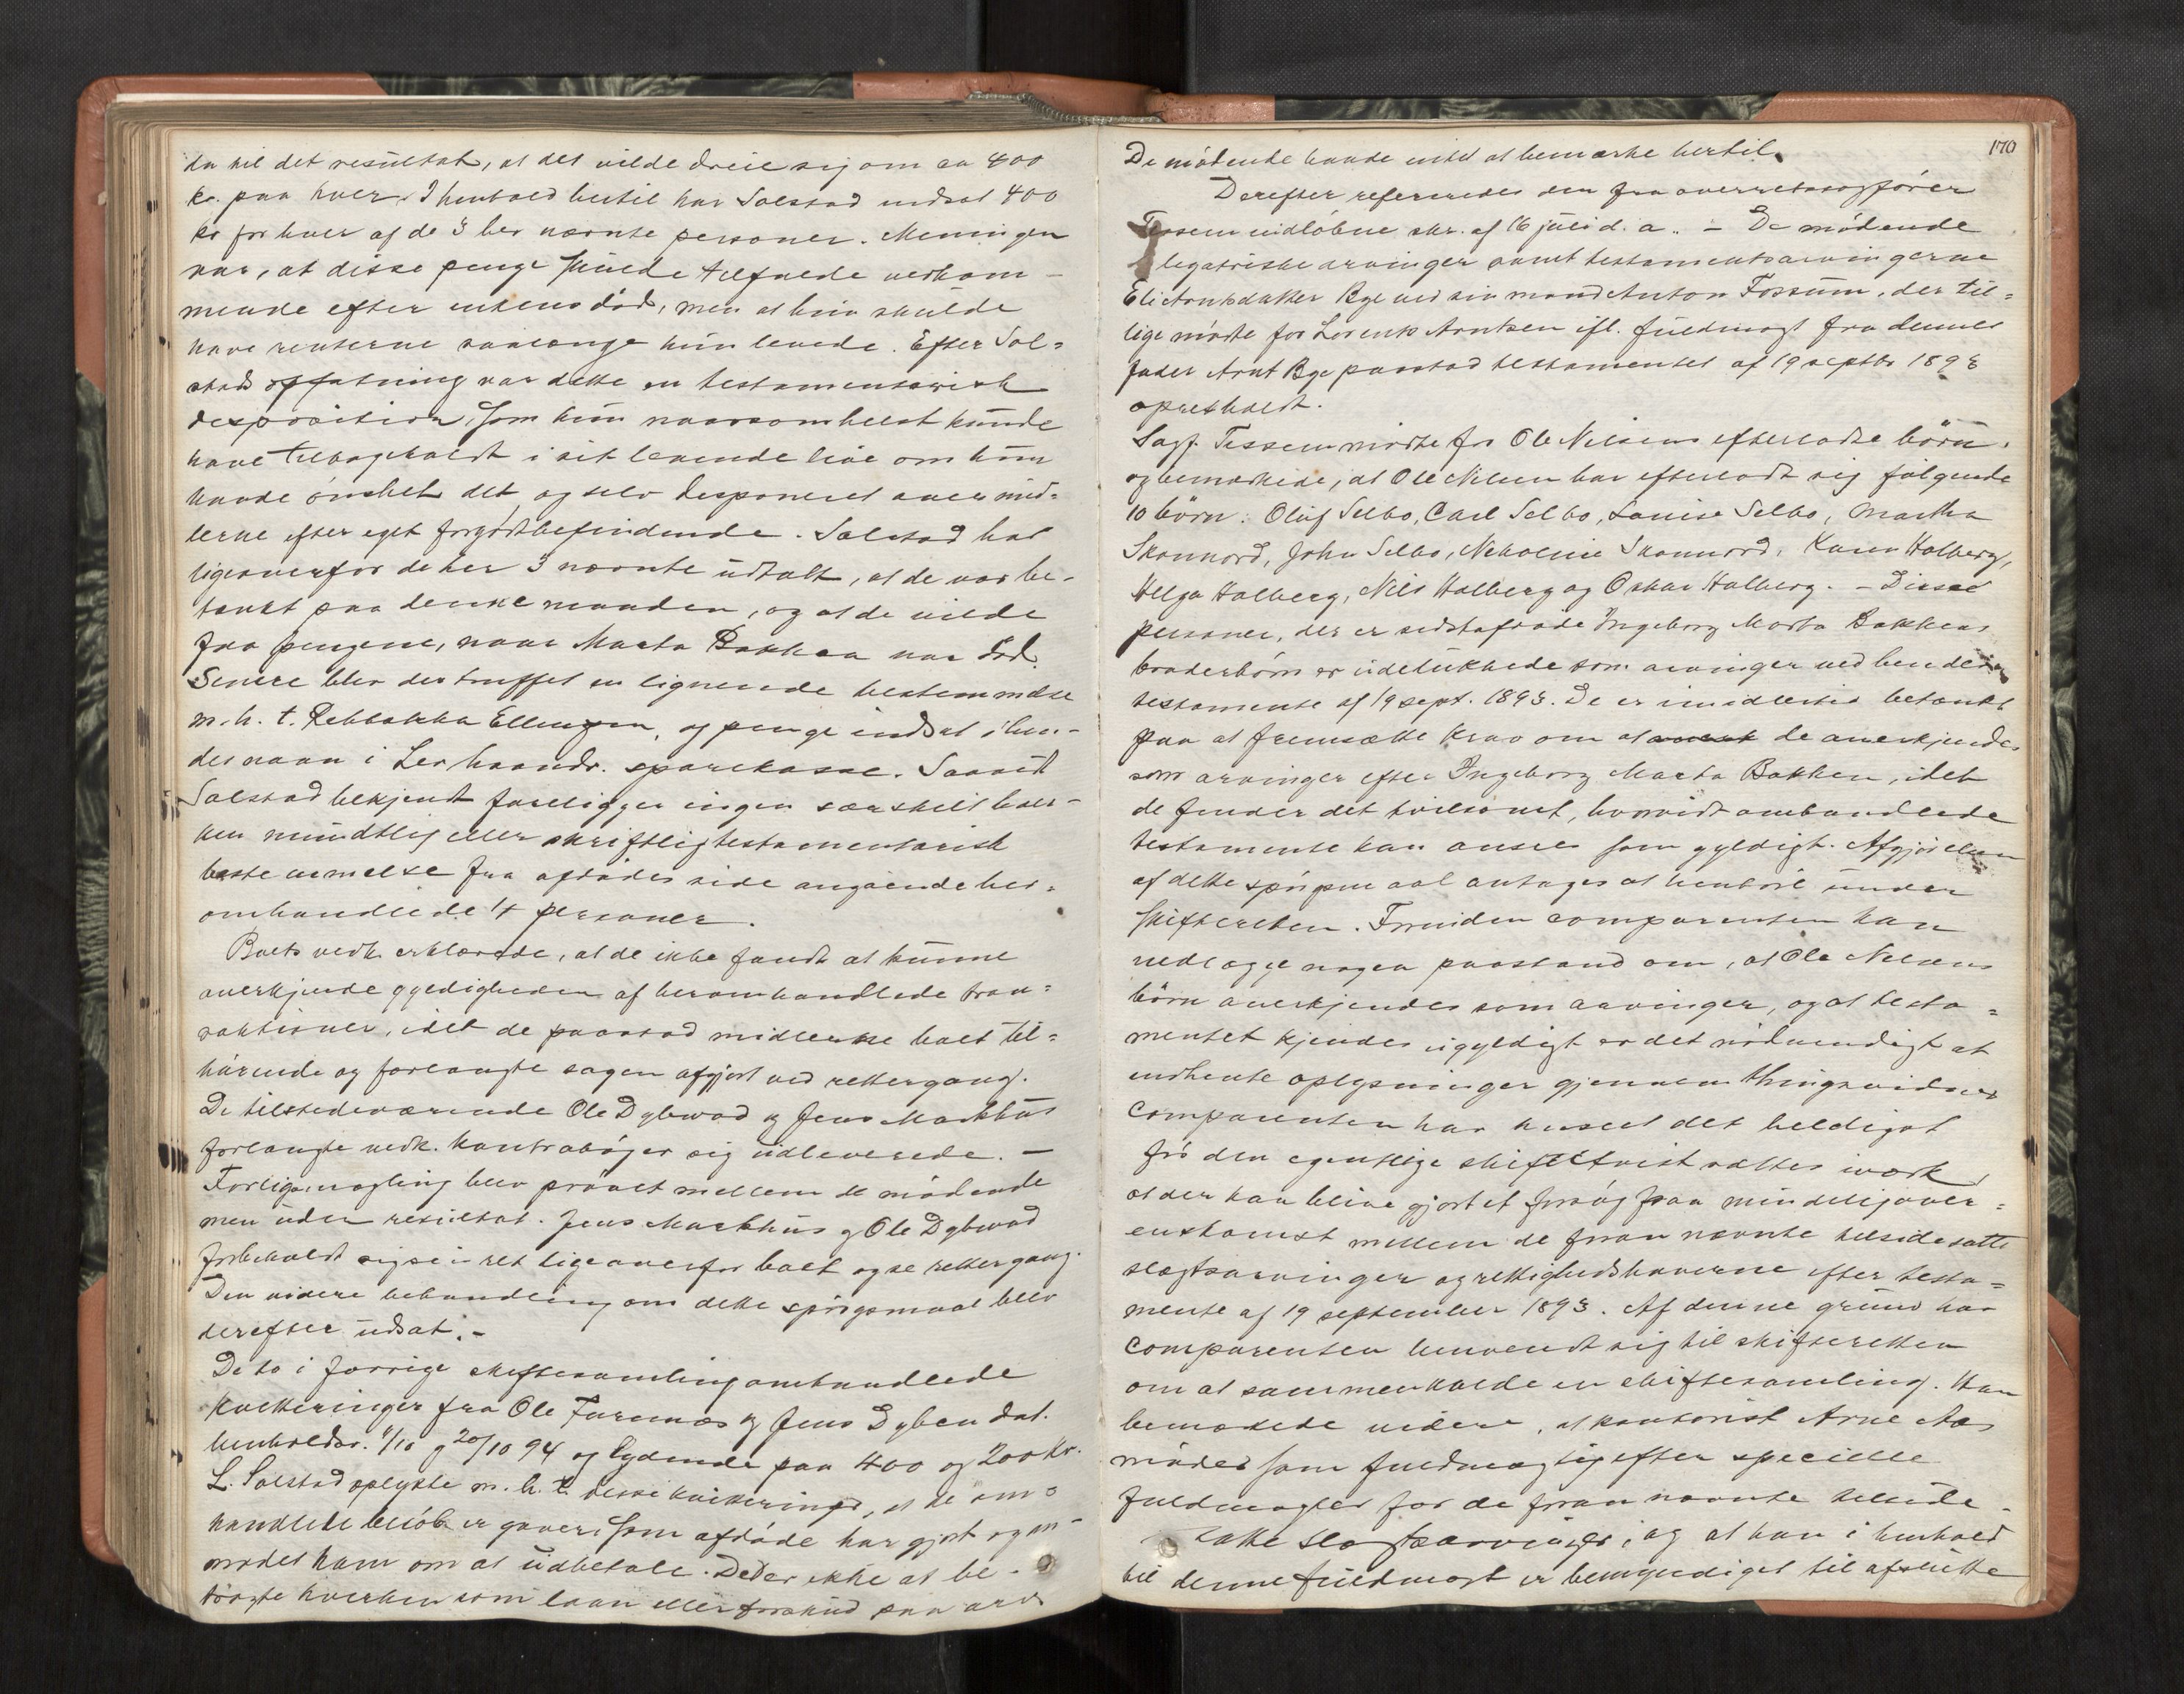 da til det resultat, at det vilde dreie sig om ca 400
kr. paa hver. I henhold hertil har Solstad indsat 400
kr for hver af de 3 her nævnte personer. Meningen
var, at disse penge skulde tilfalde vedkom-
mende efter enkens død, men at hun skulde
have renterne saalænge hun levede. Efter Sol=
stads opfatning var dette en testamentarisk
desposition, som hun naarsomhelst kunde
have tilbageholdt i sit levende live om hun
havde ønsket det og selv desponeret over mid=
lerne efter eget forgodtbefindende. Solstad har
ligeoverfor de her 3 nævnte udtalt, at de var be-
tænkt paa denne maaden, og at de vilde
faa pengene, naar Marta Bakken var død.
Senere blev der truffet en lignende bestemmelse
m. h. t. Rebbekka Ellingsen, og penge indsat i hen-
des navn i Ler haandv. sparekasse. Saavidt
Solstad bekjendt foreligger ingen særskilt hver-
ken mundtlig eller skriftlig testamentarisk
bestemmelse fra afdødes side angaaende her-
omhandlede 4 personer.
Boets vedk. erklærede, at de ikke fandt at kunne
anerkjende gyldigheden af heromhandlede tran=
saktioner, idet de paastod midlerne boet til=
hørende og forlangte sagen afgjort ved rettergang.
De tilstedeværende Ole Dybwad og Jens Markhus
forlangte vedk. kontrabøger sig udleverede. -
Forligsmægling blev prøvet mellem de mødende
men uden resultat. Jens Markhus og Ole Dybwad
forbeholdt sig sin ret ligeoverfor boet ogse rettergang.
Den videre behandling om dette spørgsmaal blev
derefter udsat. -
De to i forrige skiftesamling omhandlede
kvitteringer fra Ole Furunæs og Jens Dyben dat.
henholdsv. 4/10 g 20/10 94 og lydende paa 400 og 200 kr.
L. Solstad oplyste m. h. t. disse kvitteringer, at de om=
handlede beløb er gaver, som afdøde har gjort og an-
modet ham om at udbetale. Det er ikke at be-
tragte hverken som laan eller forskud paa arv
170
De mødende havde intet at bemærke hertil.
Derefter refereredes den fra overretssagfører
Tessem indløbne skr. af 16 juli d. a. - De mødende
legatriske arvinger samt testamentsarvingerne
Eli Arntsdatter Bye ved sin mand Anton Fossum, der til=
lige mødte for Lorents Arntsen ifl. fuldmagt fra dennes
fader Arnt Bye paastod testamentet af 19 septbr 1893
opretholdt.
Sagf. Tessem mødte for Ole Nilsens efterladte børn
og bemærkede, at Ole Nilsen har efterladt sig følgende
10 børn: Oluf Selbo, Carl Selbo, Louise Selbo, Martha
Skannord, John Selbo, Nikoline Skannord, Karen Halberg,
Helga Halberg, Nils Halberg og Oskar Halberg. - Disse
personer, der er sidstafdøde Ingeborg Marta Bakkens
broderbørn er udelukkede som arvinger ved hendes
testamente af 19 sept. 1893. De er imidlertid betænkt
paa at fremsætte krav om at de anerkjendes
som arvinger efter Ingeborg Marta Bakken, idet
de finder det tvilsomt, hvorvidt ombandlede
testamente kan ansees som gyldigt. Afgjørelsen
af dette spørgsmaal antages at henhøre under
skifteretten. Forinden comparenten kan
nedlægge nogen paastand om, at Ole Nilsens
børn anerkjendes som arvinger, og at testa=
mentet kjendes ugyldigt er det nødvendigt at
indhente oplysninger gjennem thingsvidner
Comparenten har anseet det heldigst
før den egentlige skiftetvist sættes i værk,
at der kan blive gjort et forsøg paa mindelig over=
enskomst mellem de foran nævnte tilsidesatte
slægtsarvinger og rettighedshaverne efter testa=
mente af 19 september 1893. Af denne grund har
comparenten henvendt sig til skifteretten
om at sammenkalde en skiftesamling. Han
bemærkede videre, at kontorist Arne Aas
møder som fuldmægtig efter specielle
fuldmagter for de foran nævnte tilside-
satte slægtsarvinger, og at han i henhold
til denne fuldmagt er bemyndiget til afslutte